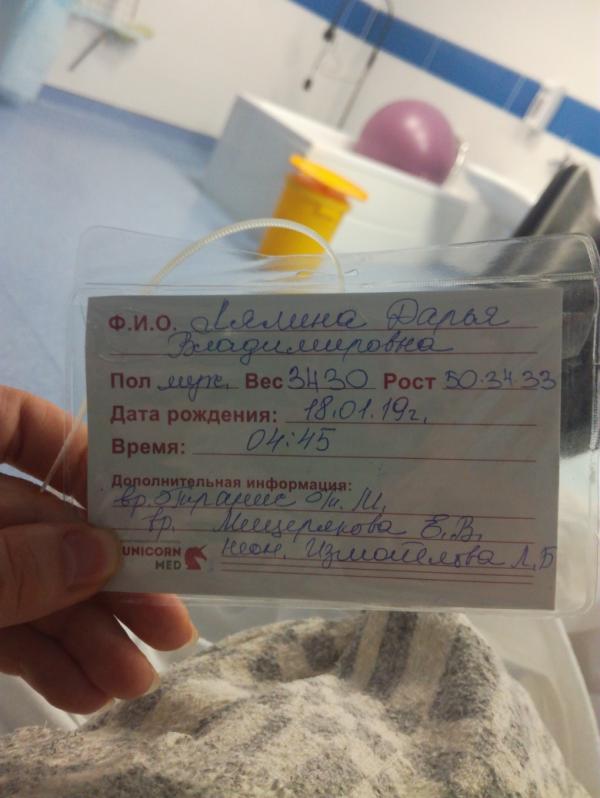 Ф.И.О. Лялина Дарья
Владимировна
Пол муж. Вес 3430 Рост 50.34.33
Дата рождения: 18.01.19г.
Время: 04:45
Дополнительная информация:
вр.
вр. Мещерякова Е.В.
неон. Измайлова Л.Б
UNICORN
MED